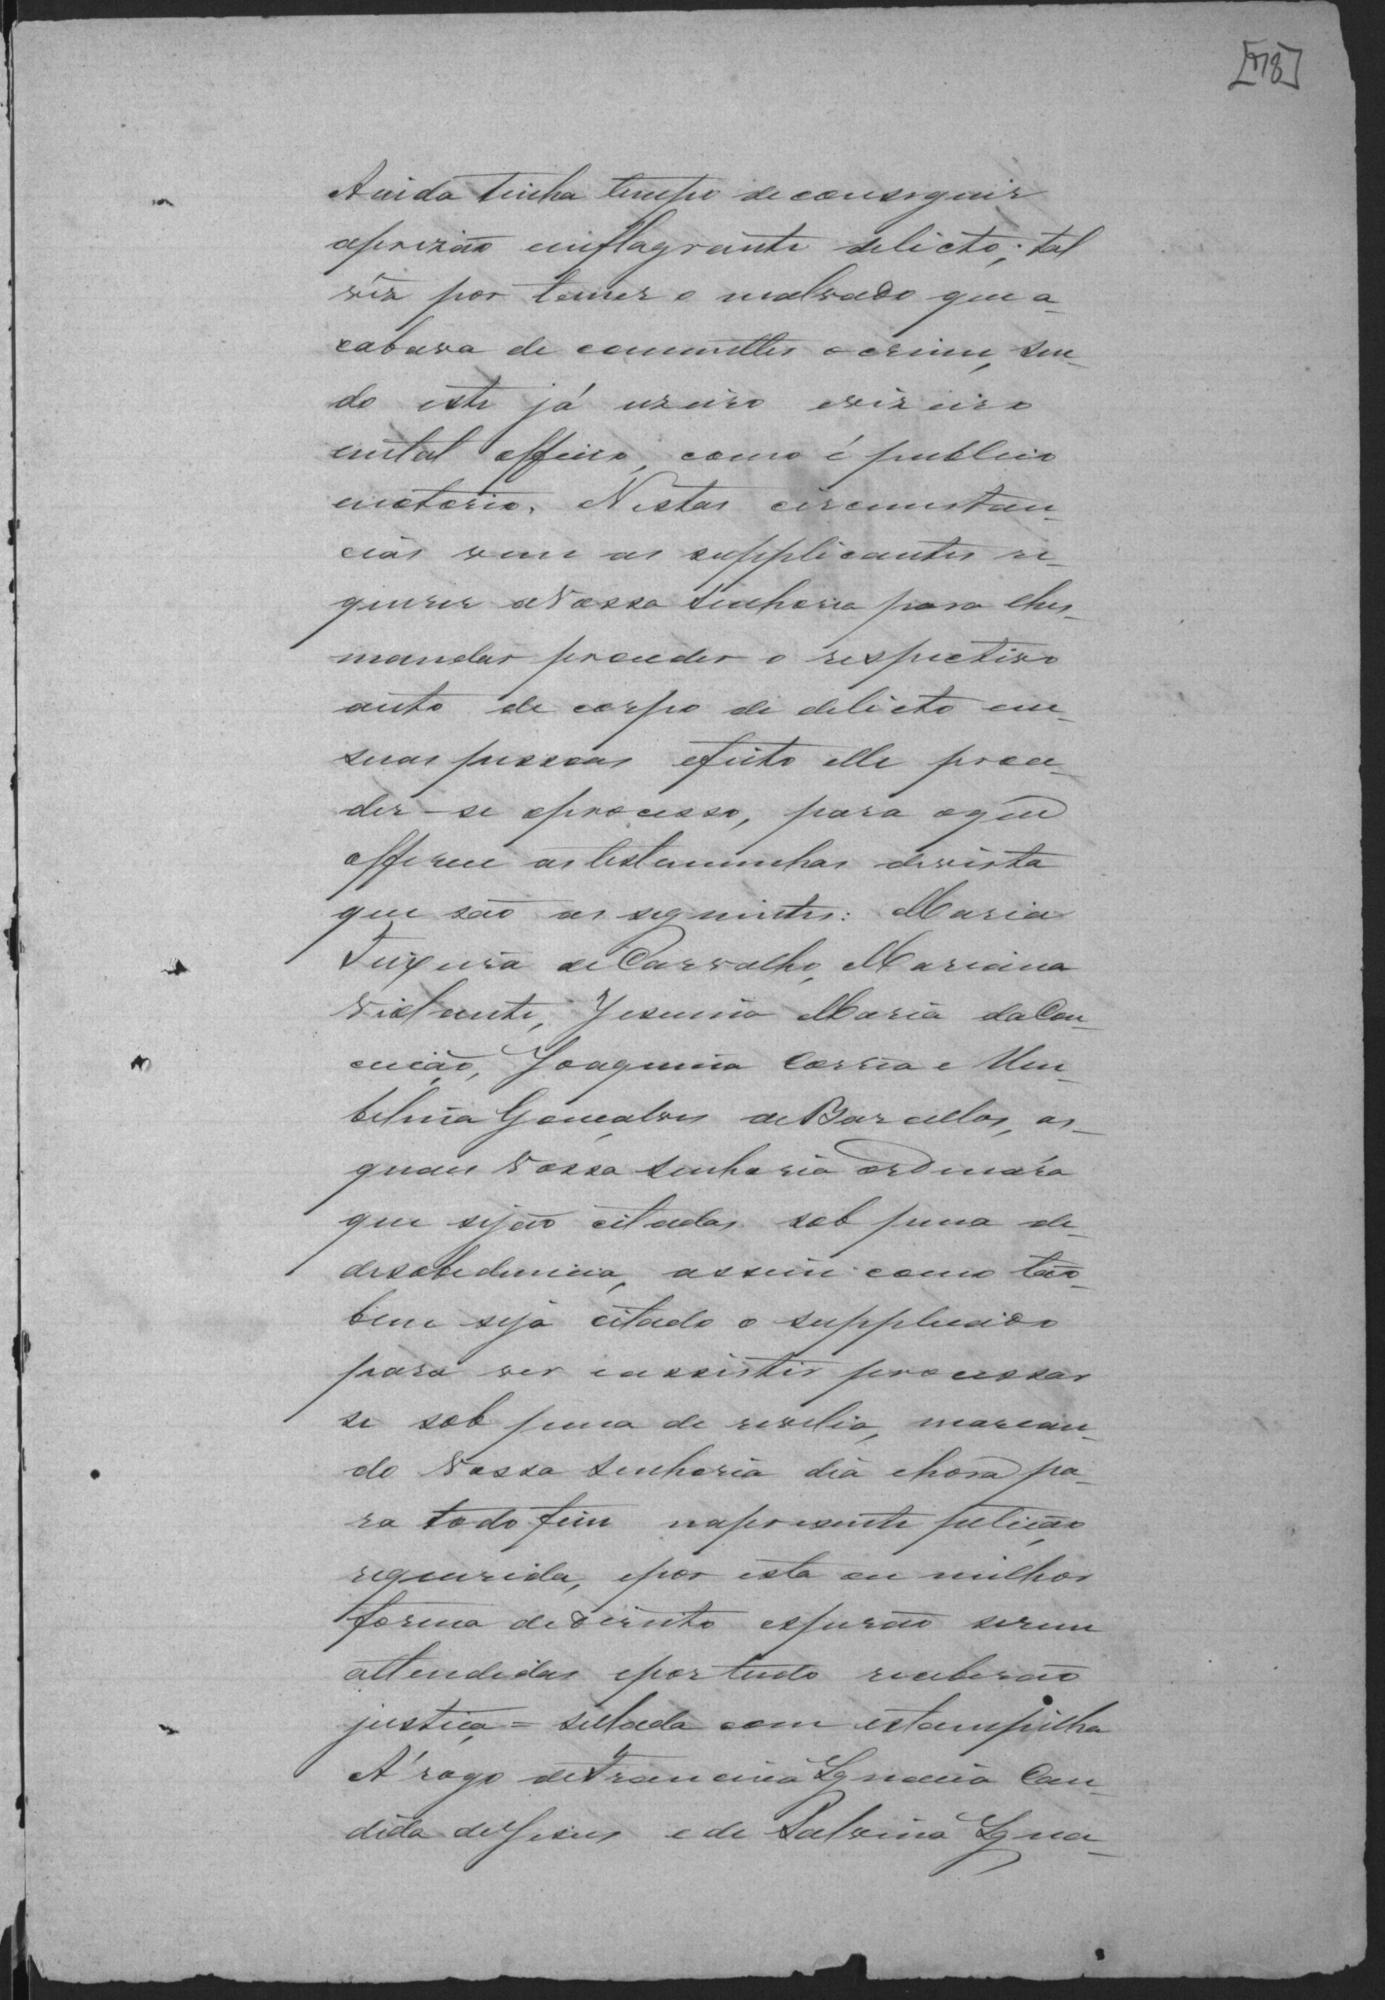 [178]
Ainda tinha tempo de conseguir
aprizão emflagrante delicto; tal
véz por temer o malvado que a-
cabava de commetter o crime, sen-
do este já uzeiro evizeiro
emtal officio, como é publico
enotorio. Nestas circumstan-
cias vem as supplicantes re-
querer aVossa Senhoria para lhes
mandar proceder o respectivo
auto de corpo de delicto em
suas pessoas efeito elle proce-
der-se oprocesso, para oque
offerece as testemunhas devista
que são as seguintes: Maria
Teixeira de Carvalho, Marciana
Violante, Jesuina Maria daCon-
ceição, Joaquina Corrêa e Um-
belina Gonçalves deBarcellos, as
quaes Vossa Senhoria ordenará
que sejão citadas sob pena de
desobediencia, assim como tão-
bem seja citado o supplicado
para ver eassistir processar
se sob pena de revelia, marcan-
do Vossa Senhoria dia ehora pa-
ra todo fim napresente petição
requerida, epor esta ou milhor
forma dedireito esperão serem
attendidas eportudo receberão
justiça = sellada com estampilha
A'rogo deFrancisca Ignacia Can-
dida deJesus e de Balvina Igna-